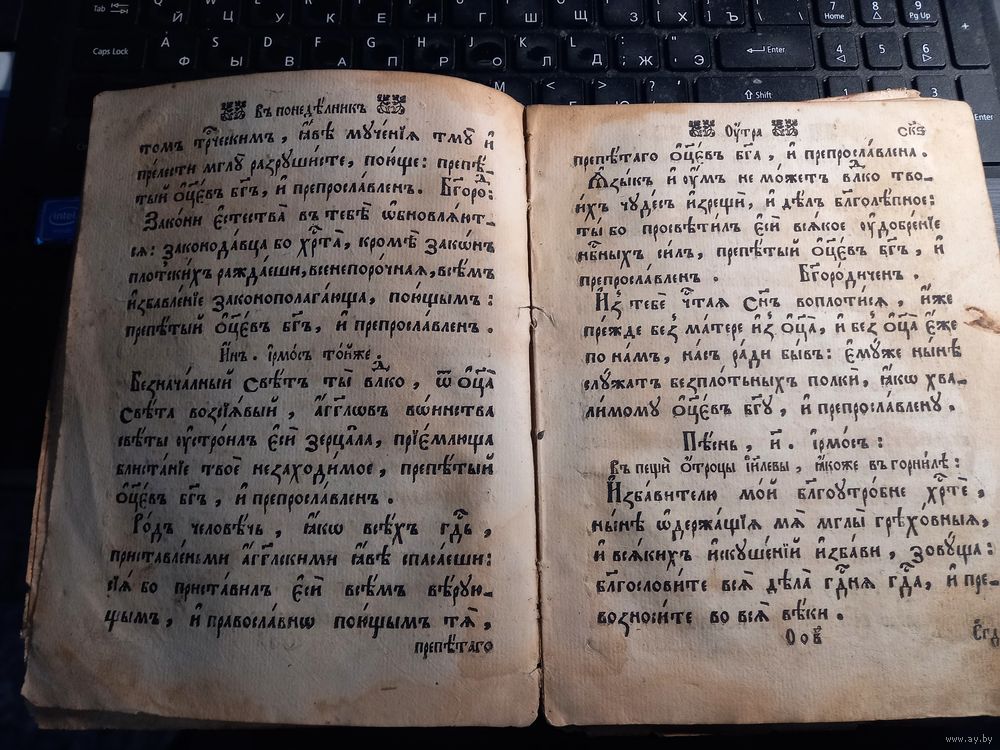 Въ понедѣ́лникъ
томъ трⷭ҇ческимъ , ꙗ҆́вѣ мꙋче́нїѧ тмꙋ̀ и҆
пре́лести мглꙋ̀ разрꙋши́сте, пою́ще: препѣ́-
тый ѻ҆ц҃е́въ бг҃ъ, и҆ препросла́вленъ. Бг҃оро:
Зако́ни є҆стества̀ въ тебѣ̀ ѡ҆бновлѧ́ют-
сѧ: законода́вца бо хрⷭ҇та̀, кромѣ̀ зако́нъ
плотски́хъ ражда́еши, всенепоро́чнаѧ, всѣ́мъ
и҆збавле́нїе законополага́юща, пою́щымъ:
препѣ́тый ѻ҆ц҃е́въ бг҃ъ, и҆ препросла́вленъ.
И҆́нъ . і҆рмо́съ то́йже .
Безнача́лный свѣ́тъ ты̀ влⷣко , ѿ ѻ҆ц҃а̀
свѣ́та возсїѧ́вый , а҆́гг҃лѡвъ вѡ́инства
свѣ́ты ᲂу҆стро́илъ є҆сѝ зерца́ла, прїе́млюща
блиста́нїе твоѐ незаходи́мое , препѣ́тый
ѻ҆ц҃е́въ бг҃ъ , и҆ препросла́вленъ .
Ро́дъ человѣ́чь , ꙗ҆́кѡ всѣ́хъ гдⷭ҇ь ,
приста́вленьми а҆́гг҃лскими ꙗ҆́вѣ спаса́еши:
сїѧ́ бо приста́вилъ є҆сѝ всѣ́мъ вѣ́рꙋю-
щымъ , и҆ правосла́внѡ пою́щымъ тѧ̀ ,
препѣ́таго
Оу҆́тра
скѕ
препѣ́таго ѻ҆ц҃е́въ бг҃а , и҆ препросла́влена .
Ꙗ҆зы́къ и҆ ᲂу҆́мъ не мо́жетъ влⷣко тво-
и́хъ чꙋде́съ и҆зрещѝ, и҆ дѣ́лъ бл҃голѣ́пное:
ты́ бо просвѣти́лъ є҆сѝ всѧ́кое ᲂу҆добре́нїе
нбⷭ҇ныхъ си́лъ, препѣ́тый ѻ҆ц҃е́въ бг҃ъ , и҆
препросла́вленъ . Бг҃оро́диченъ .
И҆з̾ тебѐ чⷭ҇таѧ сн҃ъ воплоти́сѧ , и҆́же
пре́жде без̾ ма́тере и҆з̾ ѻ҆ц҃а̀, и҆ без̾ ѻ҆ц҃а̀ є҆́же
по на́мъ, на́съ ра́ди бы́въ: є҆мꙋ́же ны́нѣ
слꙋ́жатъ безпло́тьныхъ полкѝ, ꙗ҆́кѡ хва-
ли́момꙋ ѻ҆ц҃е́въ бг҃ꙋ , и҆ препросла́вленꙋ .
Пѣ́снь , и҃ . і҆рмо́съ :
Въ пещѝ ѻ҆́троцы і҆и҃левы , ꙗ҆́коже въ горни́лѣ :
И҆зба́вителю мо́й бл҃гоꙋтро́бне хрⷭ҇тѐ ,
ны́нѣ ѡ҆держа́щїѧ мѧ̀ мглы̀ грѣхо́вныѧ,
и҆ всѧ́кихъ и҆скꙋше́нїй и҆зба́ви , зовꙋ́ща :
бл҃гослови́те всѧ̀ дѣла̀ гдⷭ҇нѧ гдⷭ҇а, и҆ пре-
возноси́те во всѧ̀ вѣ́ки .
Tab
Caps Lock
A
S
D
F
G
H
J
K
L
Ф
Ы
В
А
П
Р
О
Л
Д
Ж
Э
Enter
Shift
7
Home
8
9
Pg Up
4
5
6
1
3
Enter
intel
www.ay.by